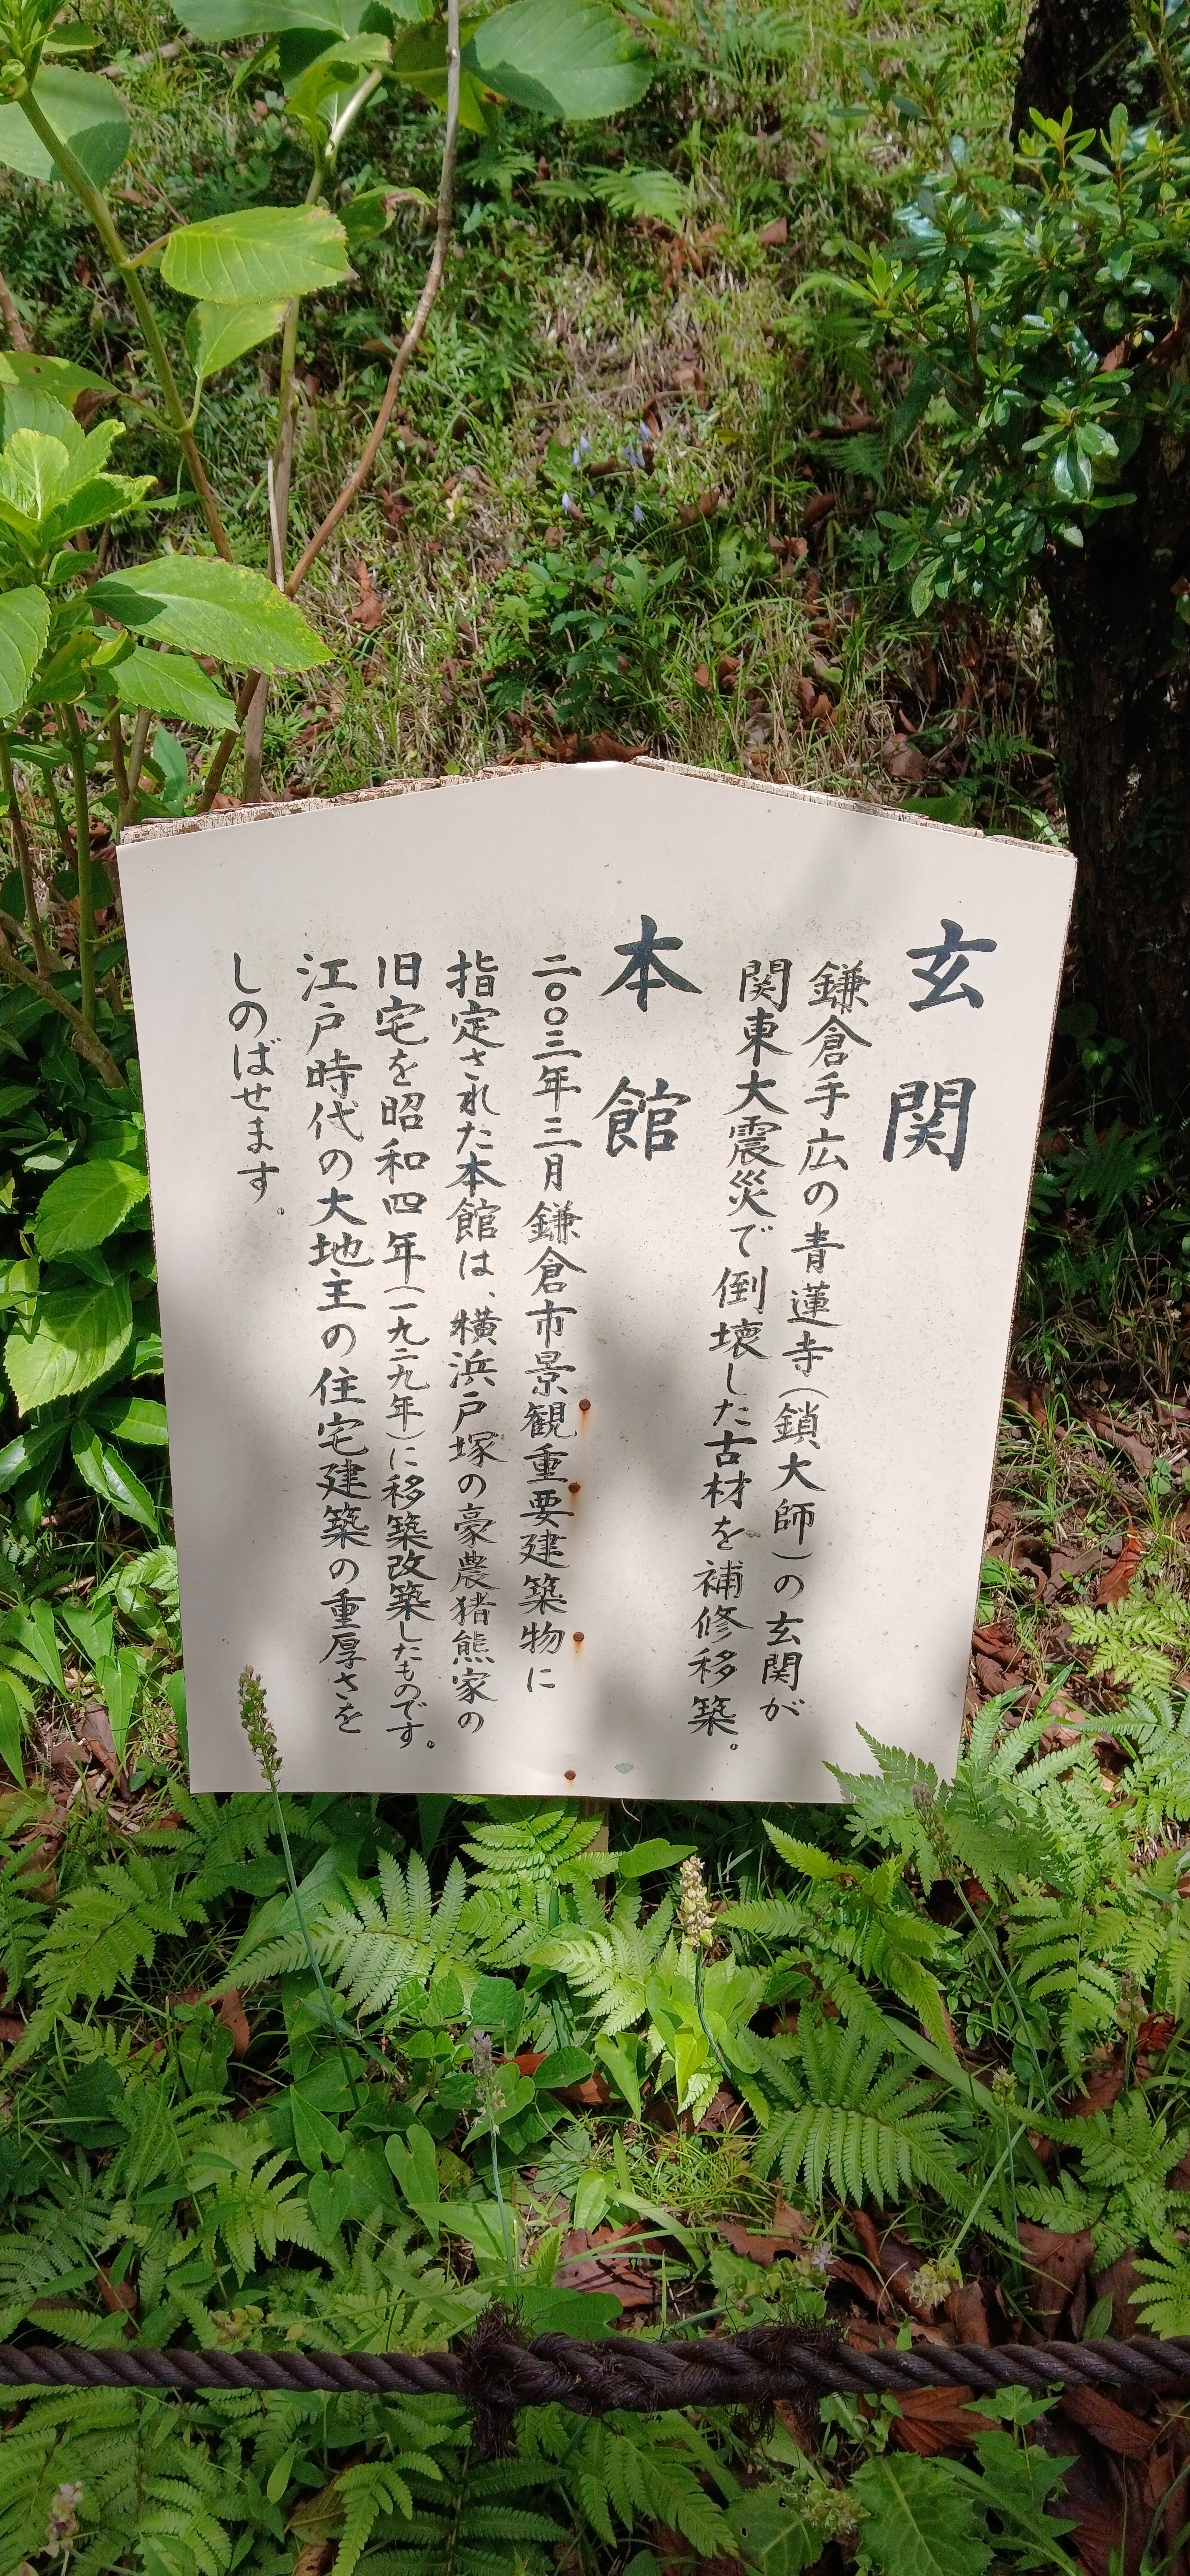 玄関
鎌倉手広の青蓮寺(鎖大師)の玄関が
関東大震災で倒壊した古材を補修移築。
本館
二〇〇三年三月鎌倉市景観重要建築物に
指定された本館は、横浜戸塚の豪農猪熊家の
旧宅を昭和四年(一九二九年)に移築改築したものです。
江戸時代の大地主の住宅建築の重厚さを
しのばせます。